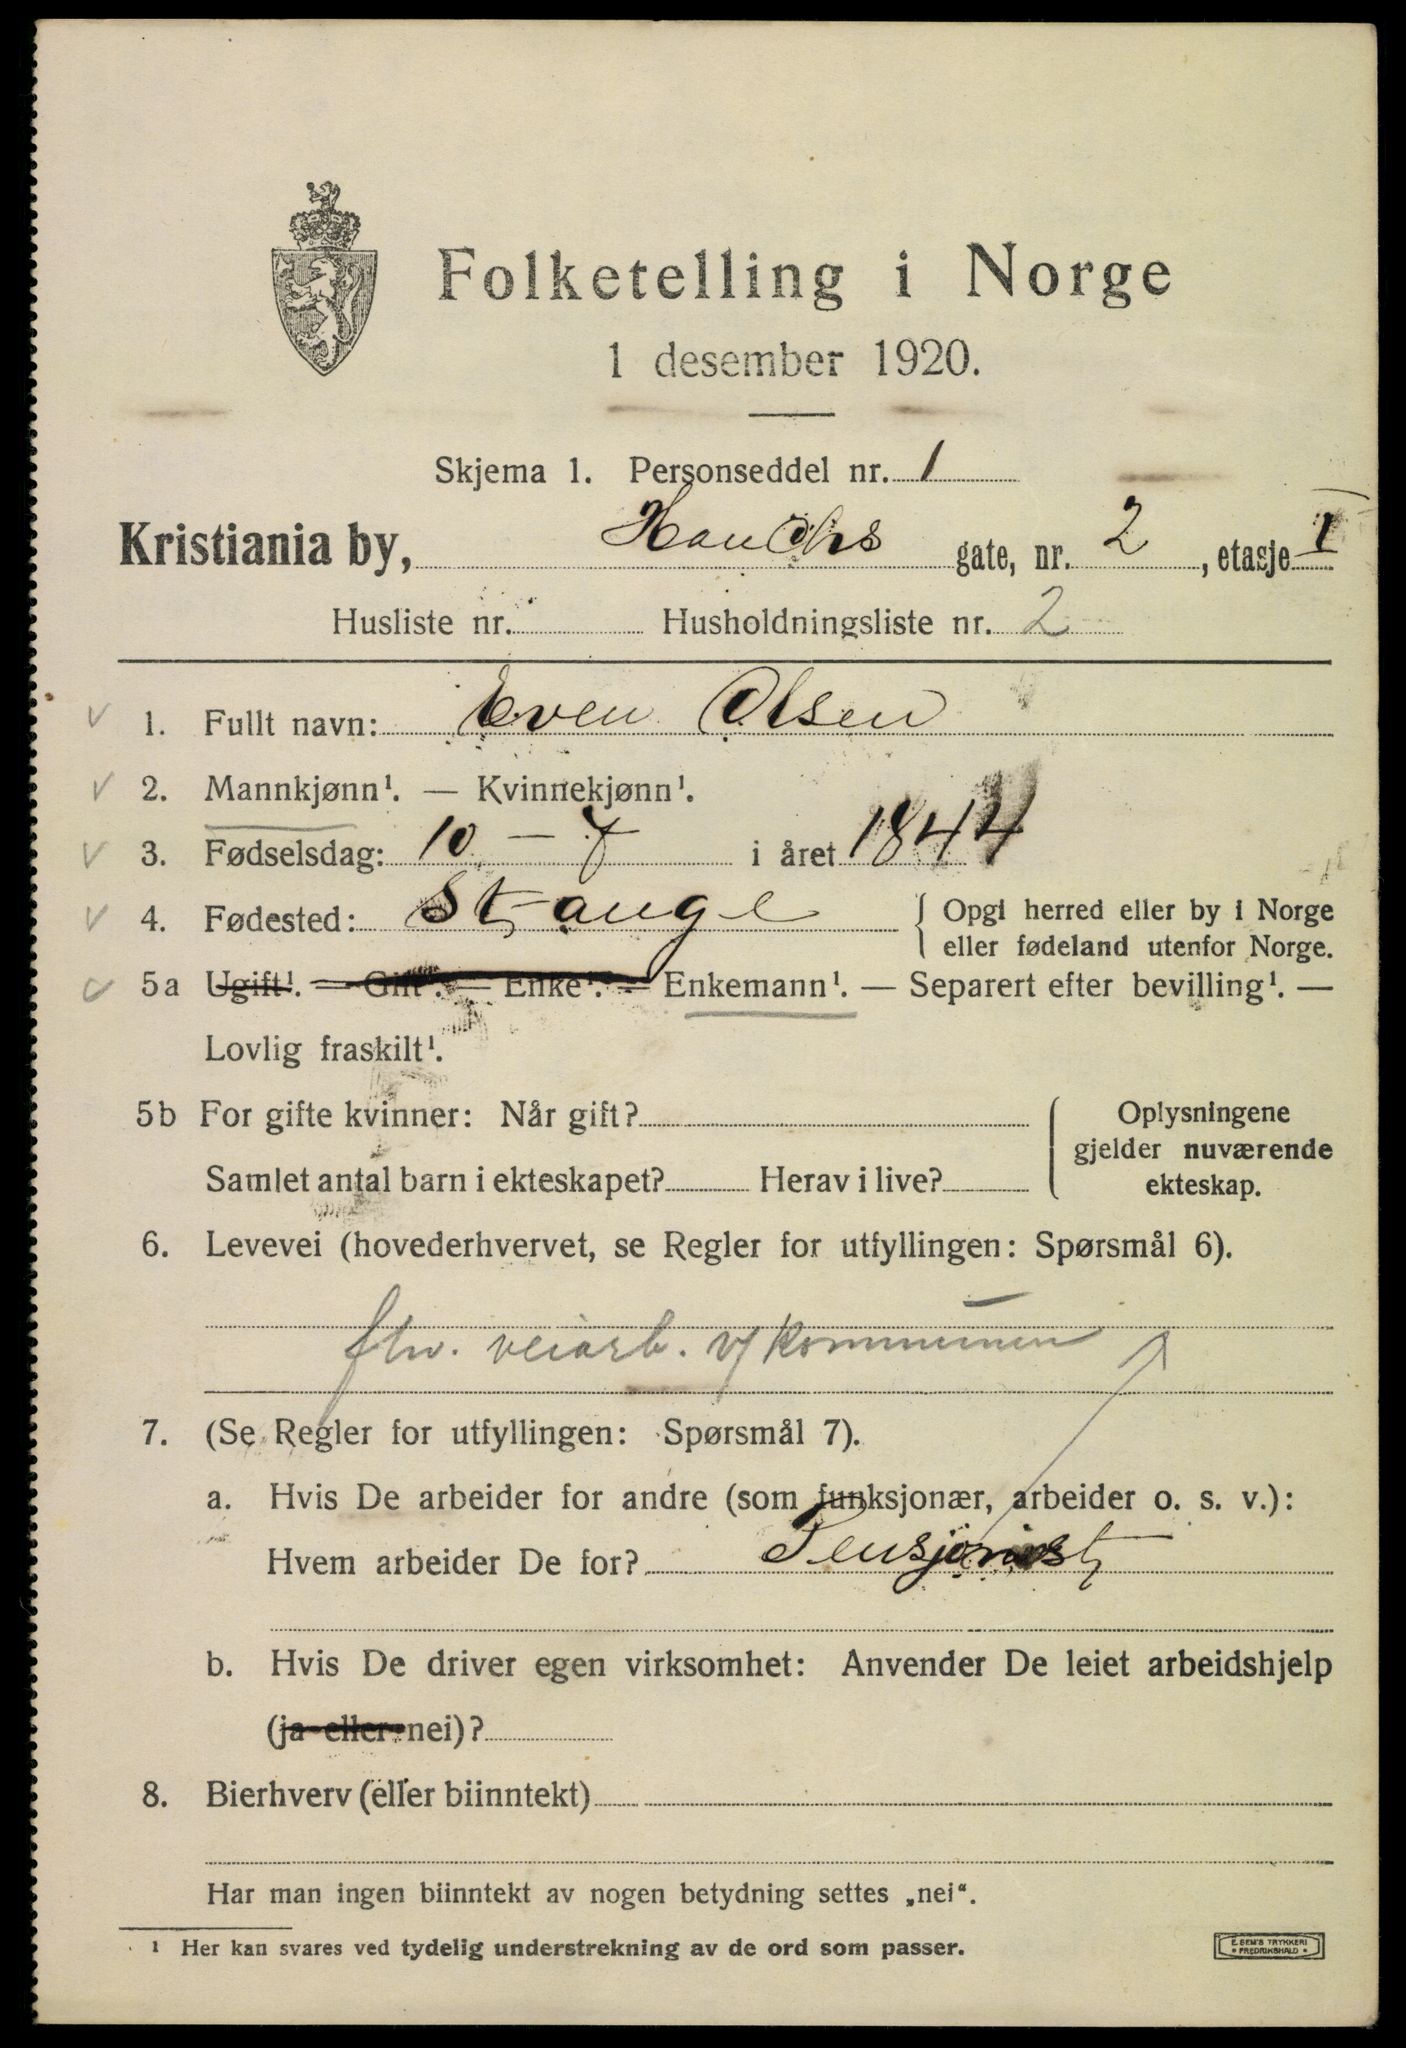 Folketelling i Norge
1 desember 1920.
Skjema 1. Personseddel nr. 1
Kristiania by, Hauchs gate, nr. 2, etasje I
Husliste nr. Husholdningsliste nr. 2
1. Fullt navn: Even Olsen
2. Mannkjønn¹. — Kvinnekjønn¹.
3. Fødselsdag: 10 – 7 i året 1844
4. Fødested: Stange { Opgi herred eller by i Norge
eller fødeland utenfor Norge.
5a Ugift¹. — Gift¹. — Enke¹. — Enkemann¹. — Separert efter bevilling¹. —
Lovlig fraskilt¹.
5b For gifte kvinner: Når gift? Oplysningene
gjelder nuværende
Samlet antal barn i ekteskapet? Herav i live? ekteskap.
6. Levevei (hovederhvervet, se Regler for utfyllingen: Spørsmål 6).
fhv. veiarb. v/ kommunen
7. (Se Regler for utfyllingen: Spørsmål 7).
a. Hvis De arbeider for andre (som funksjonær, arbeider o. s. v.):
Hvem arbeider De for? Pensjonist
b. Hvis De driver egen virksomhet: Anvender De leiet arbeidshjelp
(ja eller nei)?
8. Bierhverv (eller biinntekt)
Har man ingen biinntekt av nogen betydning settes „nei“.
¹ Her kan svares ved tydelig understrekning av de ord som passer.
E. SEM'S TRYKKERI
FREDRIKSHALD